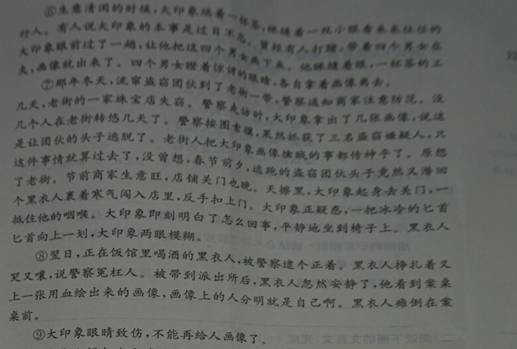 ⑥生意清闲的时候，大印象端着一杯茶，眯缝着一双小眼看来来往往的
行人。有人说大印象的本事是过目不忘。曾经有人打赌，带着四个男女在
大印象眼前过了一趟，让他把这四个男女画下来。他眯缝着眼，一杯茶的工
夫，画像就出来了。四个男女瞪着惊讶的眼睛，各自拿着画像离去。
⑦那年冬天，流窜盗窃团伙到了老街一带，警察通知商家注意防范。没
几天，老街的一家珠宝店失窃。警察走访时，大印象拿出了几张画像，说这
几个人在老街转悠几天了。警察按图索骥，果然抓获了三名盗窃嫌疑人，只
是让团伙的头子逃脱了。老街人把大印象画像擒贼的事都传神乎了。原想
这件事情就算过去了，没曾想，春节前夕，逃跑的盗窃团伙头子竟然又潜回
了老街。节前商家生意旺，店铺关门也晚。天擦黑，大印象起身去关门，一
个黑衣人裹着寒气闯入店里，反手扣上门。大印象正疑惑，一把冰冷的匕首
抵住他的咽喉。大印象即刻明白了怎么回事，平静地坐到椅子上。黑衣人
匕首向上一划，大印象两眼模糊。
⑧翌日，正在饭馆里喝酒的黑衣人，被警察逮个正着。黑衣人挣扎着又
哭又嚷，说警察冤枉人。被带到派出所后，黑衣人忽然安静了，他看到案桌
上一张用血绘出来的画像，画像上的人分明就是自己啊。黑衣人瘫倒在案
桌前。
⑨大印象眼睛致伤，不能再给人画像了。